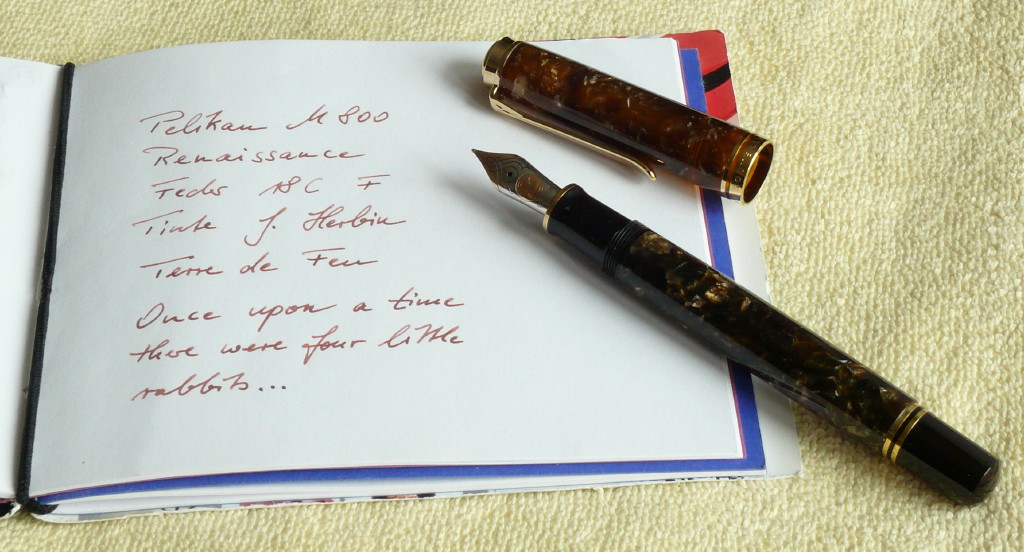 Pelikan M 800
Renaissance
Feder 18 C F
Tinte J. Herbin
Terre de Feu
Once upon a time
there were four little
rabbits...